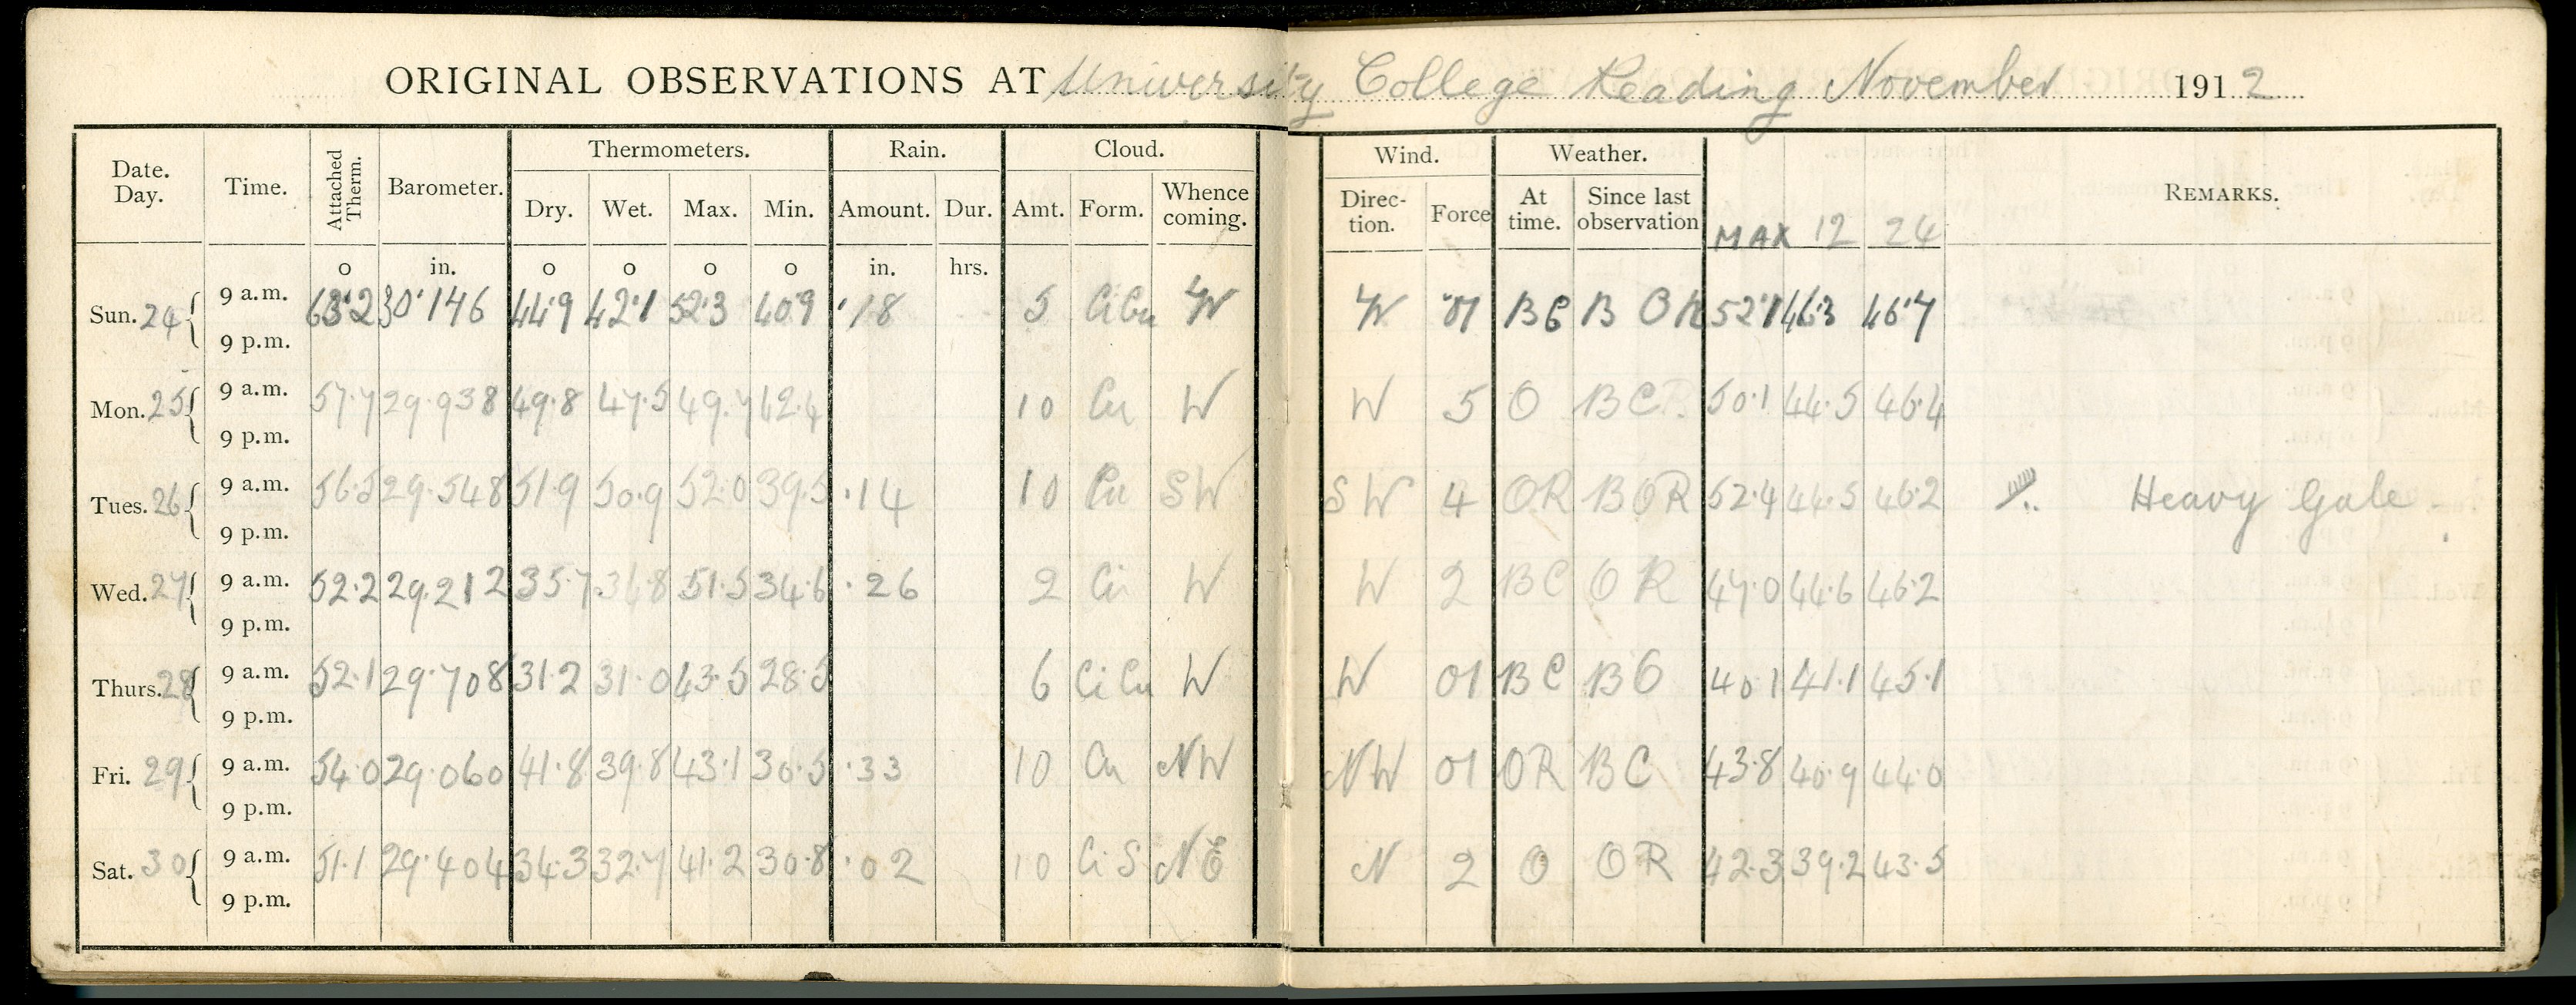 ORIGINAL OBSERVATIONS AT University College Reading November 1912
Date. Day. Time. Attached Therm. Barometer. Thermometers. Rain. Cloud. Wind. Weather. REMARKS.
Dry. Wet. Max. Min. Amount. Dur. Amt. Form. Whence coming. Direction. Force At time. Since last observation MAX 12 24
o in. o o o o in. hrs.
Sun. 24 9 a.m. 63.2 30.146 44.9 42.1 52.3 40.9 .18 5 CiCu W W 01 BC B OR 52.1 46.3 46.7
9 p.m.
Mon. 25 9 a.m. 57.7 29.938 49.8 47.5 49.7 42.4 10 Cu W W 5 O BC 50.1 44.5 46.4
9 p.m.
Tues. 26 9 a.m. 56.5 29.548 51.9 50.9 52.0 39.5 .14 10 Cu SW SW 4 OR BOR 52.4 44.5 46.2 Heavy Gale
9 p.m.
Wed. 27 9 a.m. 52.2 29.212 35.7 34.8 51.5 34.6 .26 2 Ci W W 2 BC OR 47.0 44.6 46.2
9 p.m.
Thurs. 28 9 a.m. 52.1 29.708 31.2 31.0 43.5 28.5 6 CiCu W W 01 BC BC 40.1 41.1 45.1
9 p.m.
Fri. 29 9 a.m. 54.0 29.060 41.8 39.8 43.1 30.5 .33 10 Cu NW NW 01 OR BC 43.8 40.9 44.0
9 p.m.
Sat. 30 9 a.m. 51.1 29.404 34.3 32.7 41.2 30.8 .02 10 CiS NE N 2 O OR 42.3 39.2 43.5
9 p.m.